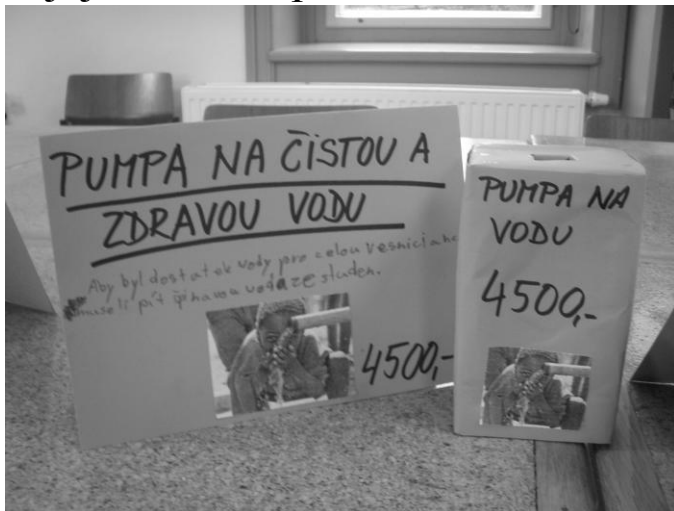 PUMPA NA ČISTOU A
ZDRAVOU VODU
Aby byl dostatek vody pro celou vesnici a ne
museli pít špinavou vodu ze studen.
4500,-
PUMPA NA
VODU
4500,-